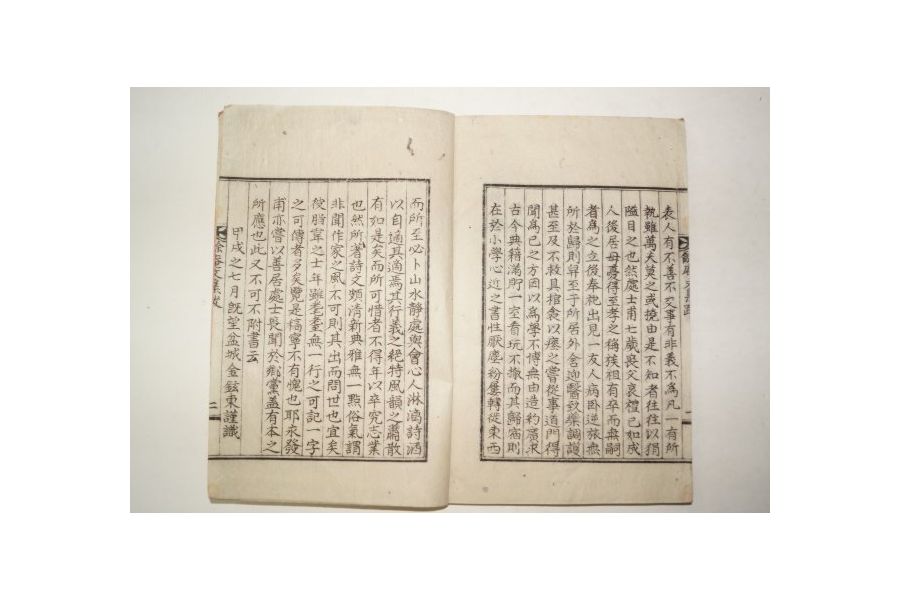 袁人有不善不交事有非義不爲凡一有所
執雖萬夫莫之或撓由是不知者往往以狷
隘目之也然處士甫七歲喪父哀禮已如成
人後居母憂得至孝之稱族祖有卒而無嗣
者爲之立後奉祀出見一友人病卧逆旅無
所於歸則舁至于所居外舍迎醫致藥調護
甚至及不救具棺衾以瘞之嘗從事道門得
聞爲己之方固以爲學不博無由造約廣求
古今典籍滿貯一室看玩不撤而其歸宿則
在於小學心近之書性厭塵紛屢轉徙東西
而所至必卜山水靜處與會心人淋漓詩酒
以自適其適焉其行義之絶特風韻之蕭散
有如是矣而所可惜者不得年以卒究志業
也然所著詩文頗清新典雅無一點俗氣謂
非聞作家之風不可則其出而問世也宜矣
彼脂韋之士年雖耄耋無一行之可記一字
之可傳者多矣覽是稿寧不有愧也耶來發
甫亦嘗以善居處士丧聞於鄉黨盖有本之
所應也此又不可不附書云
甲戌之七月旣望盆城金鉉東謹識
二